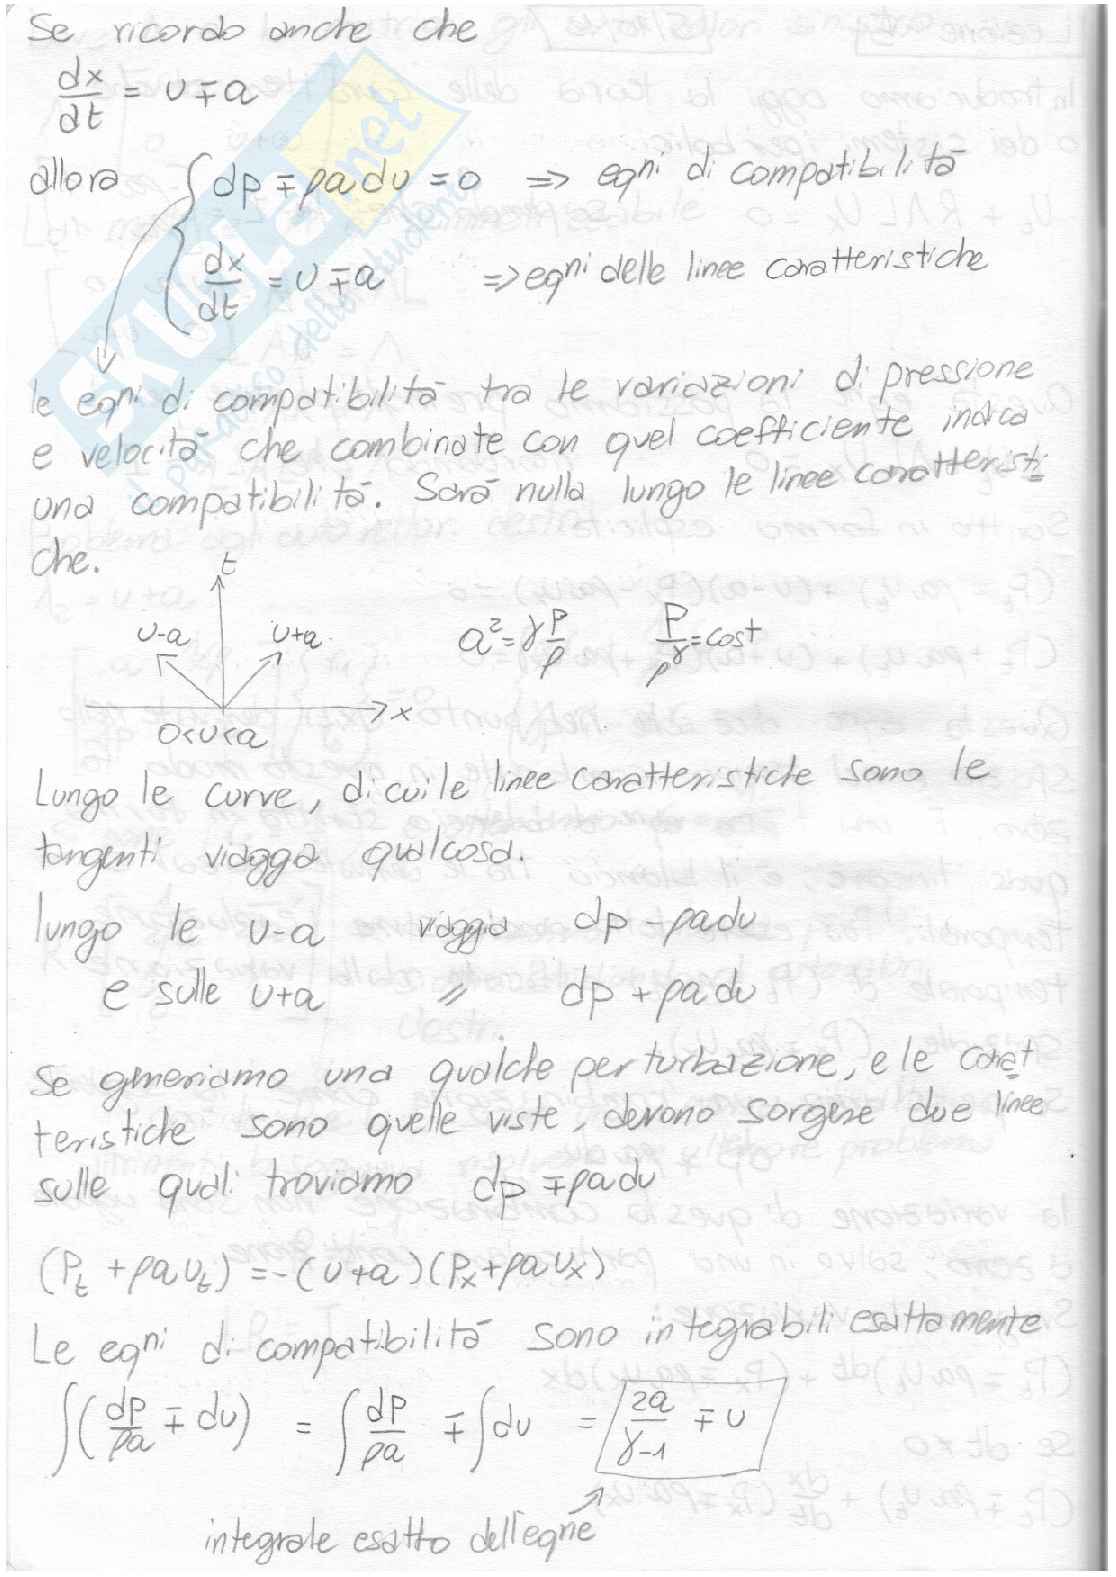 Se ricordo anche che
dx/dt = u ∓ a
allora { dp ∓ ρa du = 0 ⇒ eq^ni di compatibilità
dx/dt = u ∓ a ⇒ eq^ni delle linee caratteristiche
le eq^ni di compatibilità tra le variazioni di pressione
e velocità che combinate con quel coefficiente indica
una compatibilità. Sarà nulla lungo le linee caratteristi
che.
t
u-a u+a
x
0<u<a
a² = γ p/ρ P/ρ^γ = cost
Lungo le curve, di cui le linee caratteristiche sono le
tangenti viaggia qualcosa.
lungo le u-a viaggia dp - ρa du
e sulle u+a // dp + ρa du
Se generiamo una qualche perturbazione, e le carat
teristiche sono quelle viste, devono sorgere due linee
sulle quali troviamo dp ∓ ρa du
(P_t + ρa u_t) = -(u+a)(P_x + ρa u_x)
Le eq^ni di compatibilità sono integrabili esattamente
∫(dp/ρa ∓ du) = ∫ dp/ρa ∓ ∫ du = 2a/γ-1 ∓ u
integrale esatto dell'eqne
SKUOLA.net